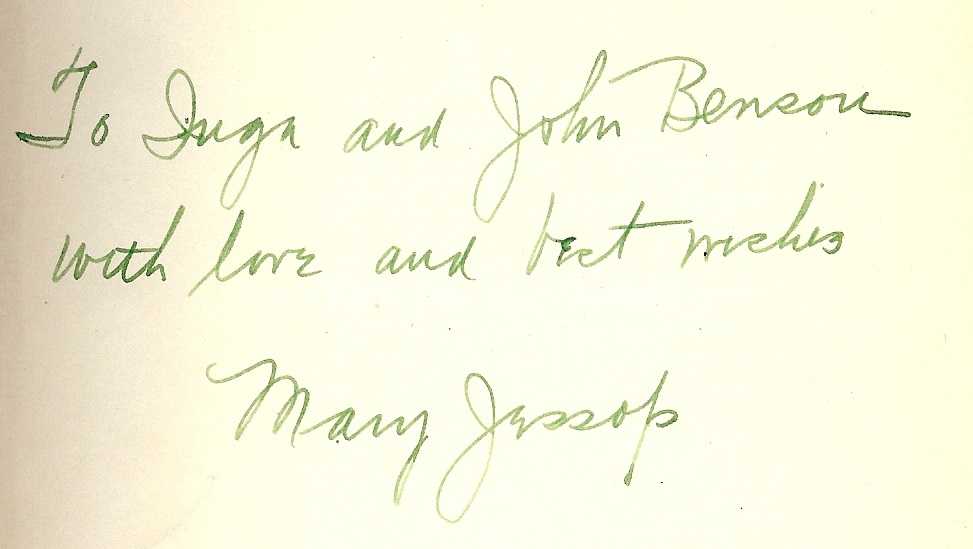 To Inga and John Benson
with love and best wishes
Mary Jessop